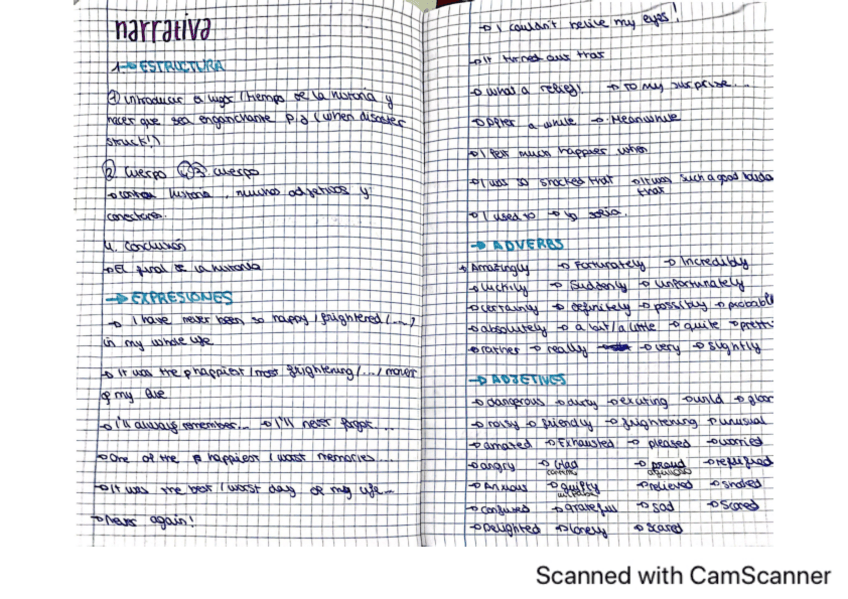 narrativa
1→ ESTRUCTURA
① introducir el lugar/tiempo de la historia y
hacer que sea enganchante p.ej (when disaster
struck!)
2. Cuerpo ③ cuerpo
→ contar historia, muchos adjetivos y
conectores.
4. Conclusión
→ El final de la historia
→ EXPRESIONES
→ I have never been so happy/frightened/(...)
in my whole life
→ It was the happiest/most frightening/.../
of my live
→ I'll always remember... → I'll never forget...
→ One of the happiest/worst memories...
→ It was the best/worst day of my life...
→ Never again!
→ I couldn't belive my eyes!
→ It turned out that
→ what a relief! → To my surprise...
→ After a while → Meanwhile
→ I felt much happier when
→ I was so shocked that → It was such a good
that
→ I used to → yo solía.
→ ADVERBS
→ Amazingly → Fortunately → Incredibly
→ luckily → Suddenly → unfortunately
→ certainly → definitely → possibly → probabl
→ absolutely → a bit/a little → quite → prett
→ rather → really → very → slightly
→ ADJETIVES
→ dangerous → dusty → exciting → wild
→ noisy → friendly → frightening → unusual
→ amazed → Exhausted → pleased → worried
→ angry → Glad → proud
contento orgulloso
→ Anxious → guilty → relieved → shocked
→ confused → grateful → sad → Scared
→ Delighted → lonely → scared
Scanned with CamScanner